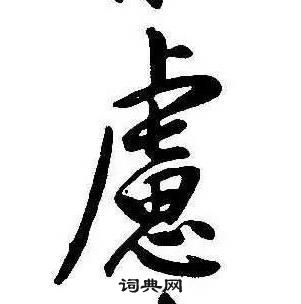 慮
词典网